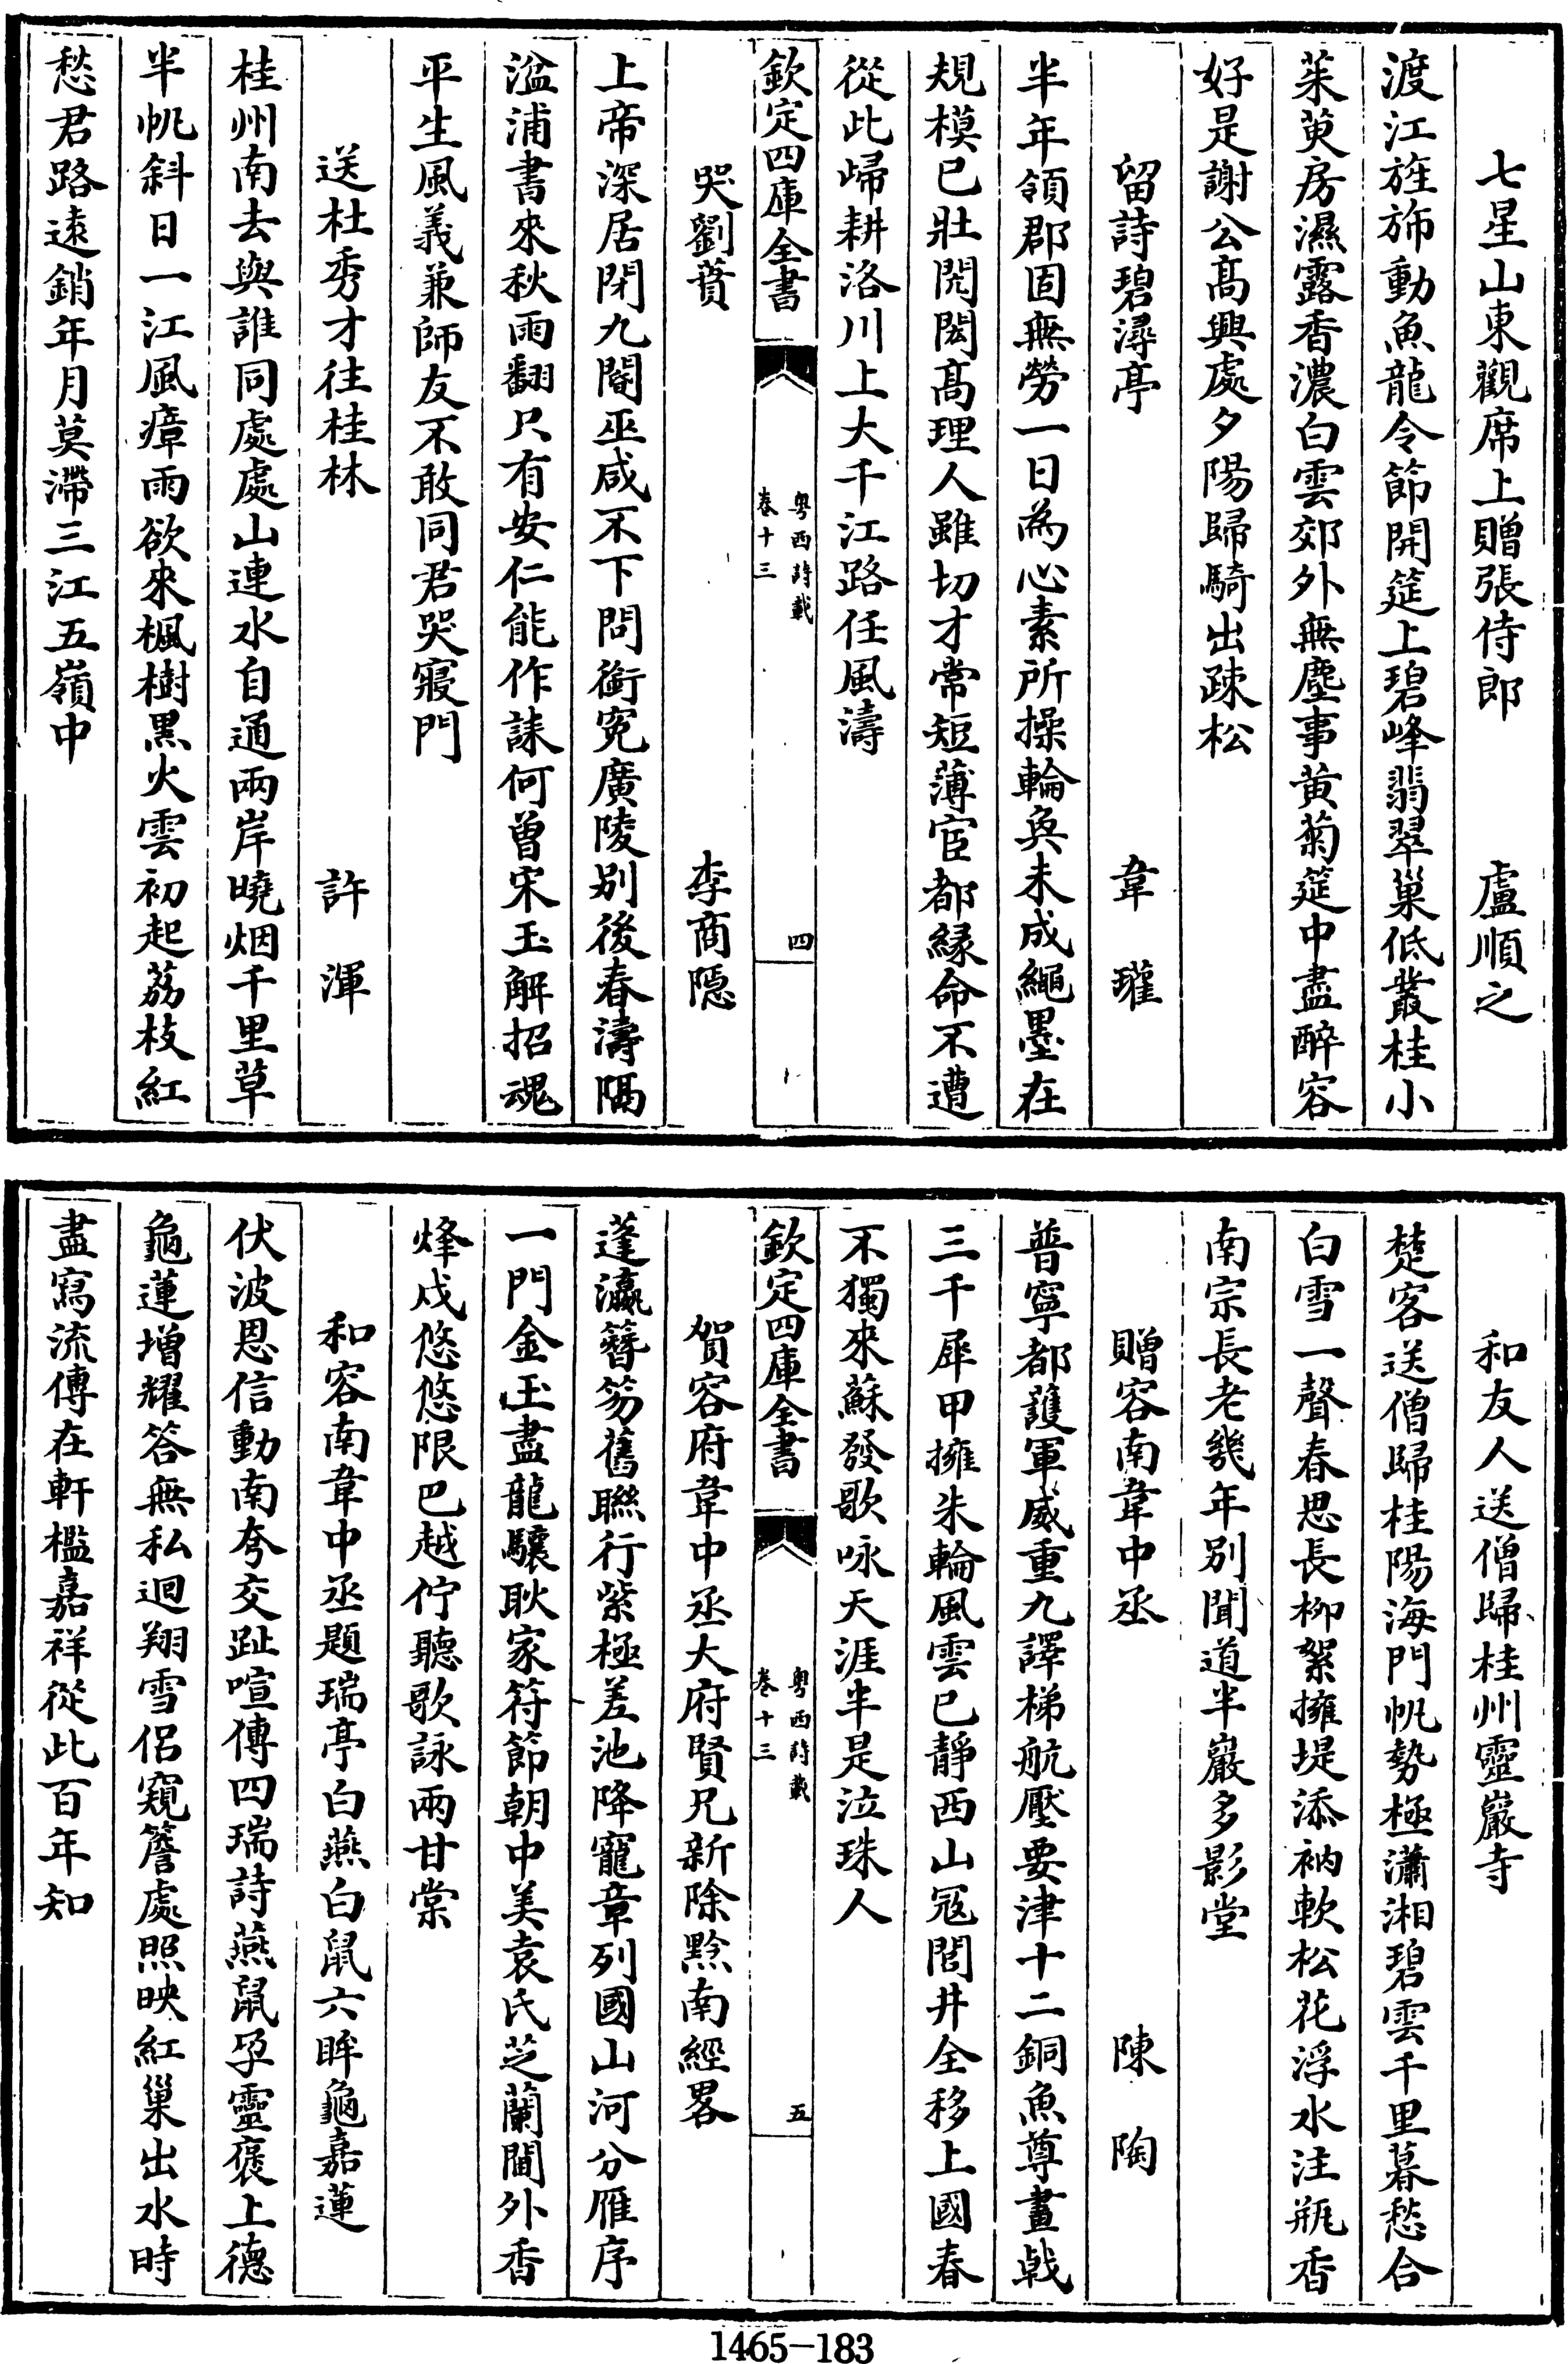 七星山東觀席上贈張侍郎　盧順之
渡江旌旆動魚龍令節開筵上碧峰翡翠巢低叢桂小
茱萸房濕露香濃白雲郊外無塵事黄菊筵中盡醉容
好是謝公髙興處夕陽歸騎出疎松
留詩碧潯亭　韋瓘
半年領郡固無勞一日為心素所操輪奐未成繩墨在
規模已壯閎閎髙理人雖切才常短薄宦都縁命不遭
從此歸耕洛川上大千江路任風濤
欽定四庫全書
粤西詩載
卷十三
四
哭劉蕡　李商隱
上帝深居閉九閽巫咸不下問銜寃廣陵别後春濤隔
湓浦書來秋雨翻只有安仁能作誄何曽宋玉解招魂
平生風義兼師友不敢同君哭寢門
送杜秀才往桂林　許渾
桂州南去與誰同處處山連水自通兩岸曉烟千里草
半帆斜日一江風瘴雨欲來楓樹黒火雲初起荔枝紅
愁君路遠銷年月莫滯三江五嶺中
和友人送僧歸桂州靈巖寺
楚客送僧歸桂陽海門帆勢極瀟湘碧雲千里暮愁合
白雪一聲春思長柳絮擁堤添衲軟松花浮水注瓶香
南宗長老幾年别聞道半巖多影堂
贈容南韋中丞　陳陶
普寧都護軍威重九譯梯航壓要津十二銅魚尊畫㦸
三千犀甲擁朱輪風雲已靜西山冦閭井全移上國春
不獨來蘇發歌咏天涯半是泣珠人
欽定四庫全書
粤西詩載
卷十三
五
賀容府韋中丞大府賢兄新除黔南經畧
蓬瀛簪笏舊聯行紫極差池降寵章列國山河分雁序
一門金玉盡龍驤耿家符節朝中美袁氏芝蘭閫外香
烽戍悠悠限巴越佇聽歌詠兩甘棠
和容南韋中丞題瑞亭白燕白鼠六眸龜嘉蓮
伏波恩信動南夸交趾喧傳四瑞詩燕鼠孕靈褒上德
龜蓮增耀答無私迴翔雪侶窺簷處照映紅巢出水時
盡寫流傳在軒檻嘉祥從此百年知
1465-183